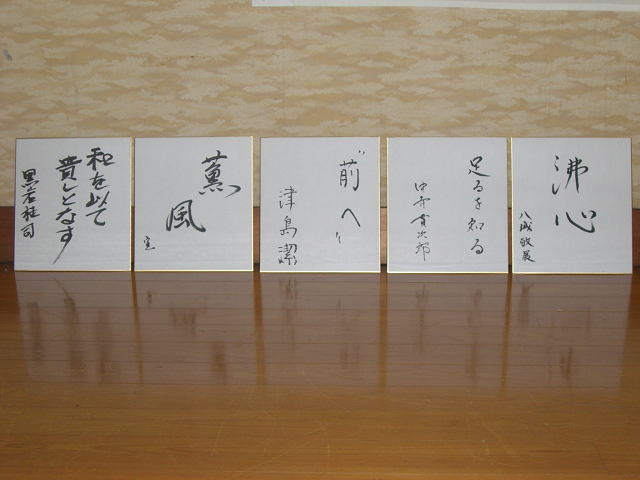 沸心
八城敬展
足るを知る
"前へ"
津島潔
薫
風
寛
和を以て
貴しとなす
黒岩桂司